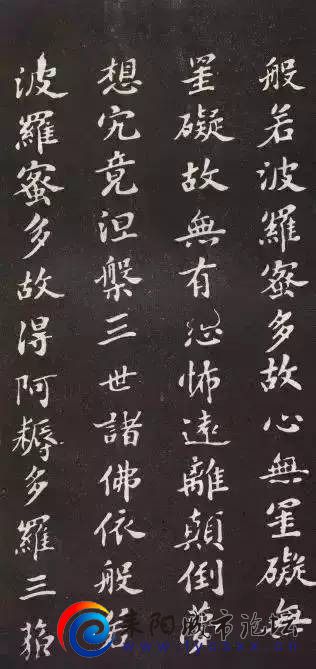 般若波羅蜜多故心無罣礙無
罣礙故無有恐怖遠離顛倒夢
想究竟涅槃三世諸佛依般若
波羅蜜多故得阿耨多羅三藐
阳 市论坛